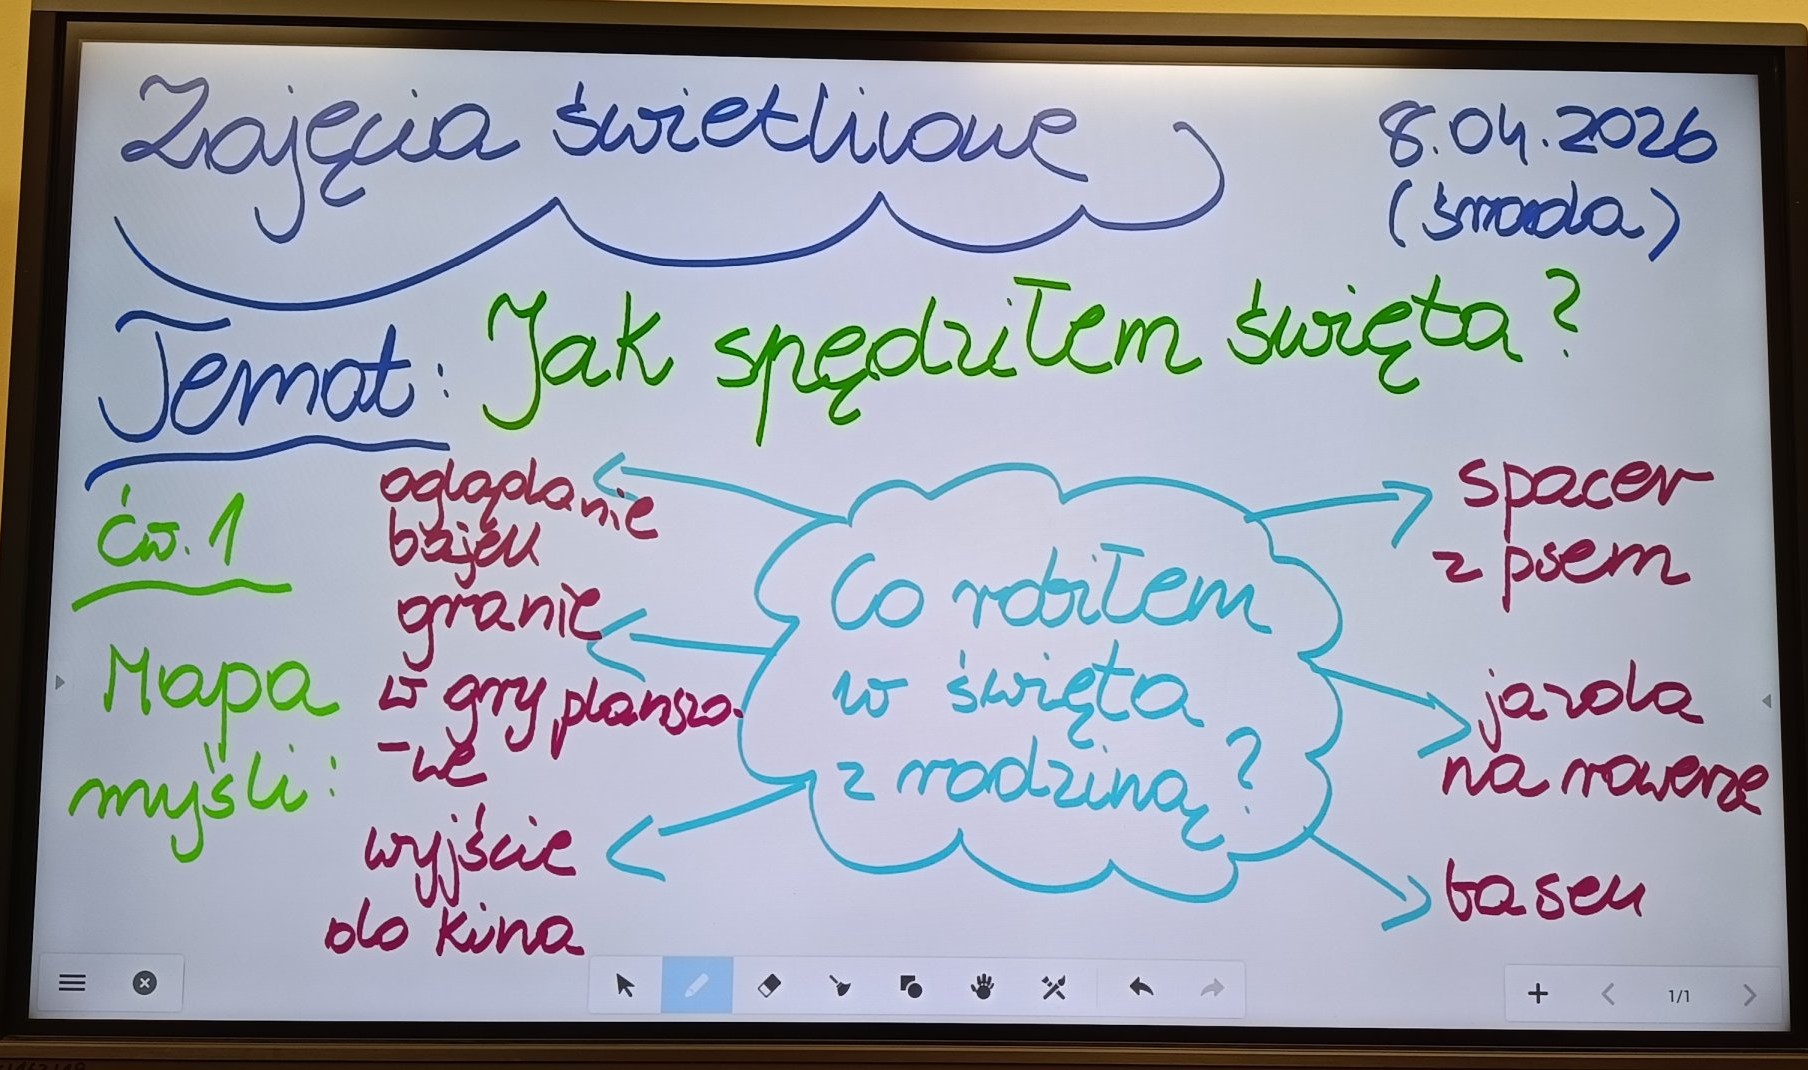 Zajęcia świetlicowe
8.04.2026
(środa)
Temat: Jak spędziłem święta?
ćw. 1
Mapa
myśli:
oglądanie
bajek
granie
w gry planszo-
-we
wyjście
do kina
Co robiłem
w święta
z rodziną?
spacer
z psem
jazda
na rowerze
basen
1/1